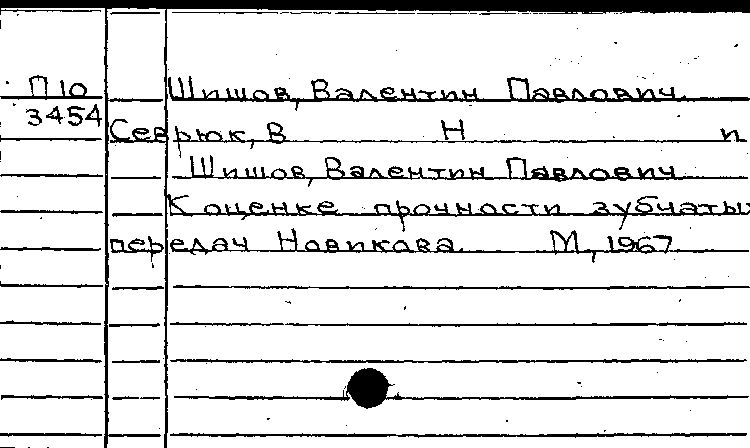 П10 Шишов, Валентин Павлович
3454
Севрюк, В Н и
Шишов, Валентин Павлович
К оценке прочности зубчаты
передач Новикова М, 1967